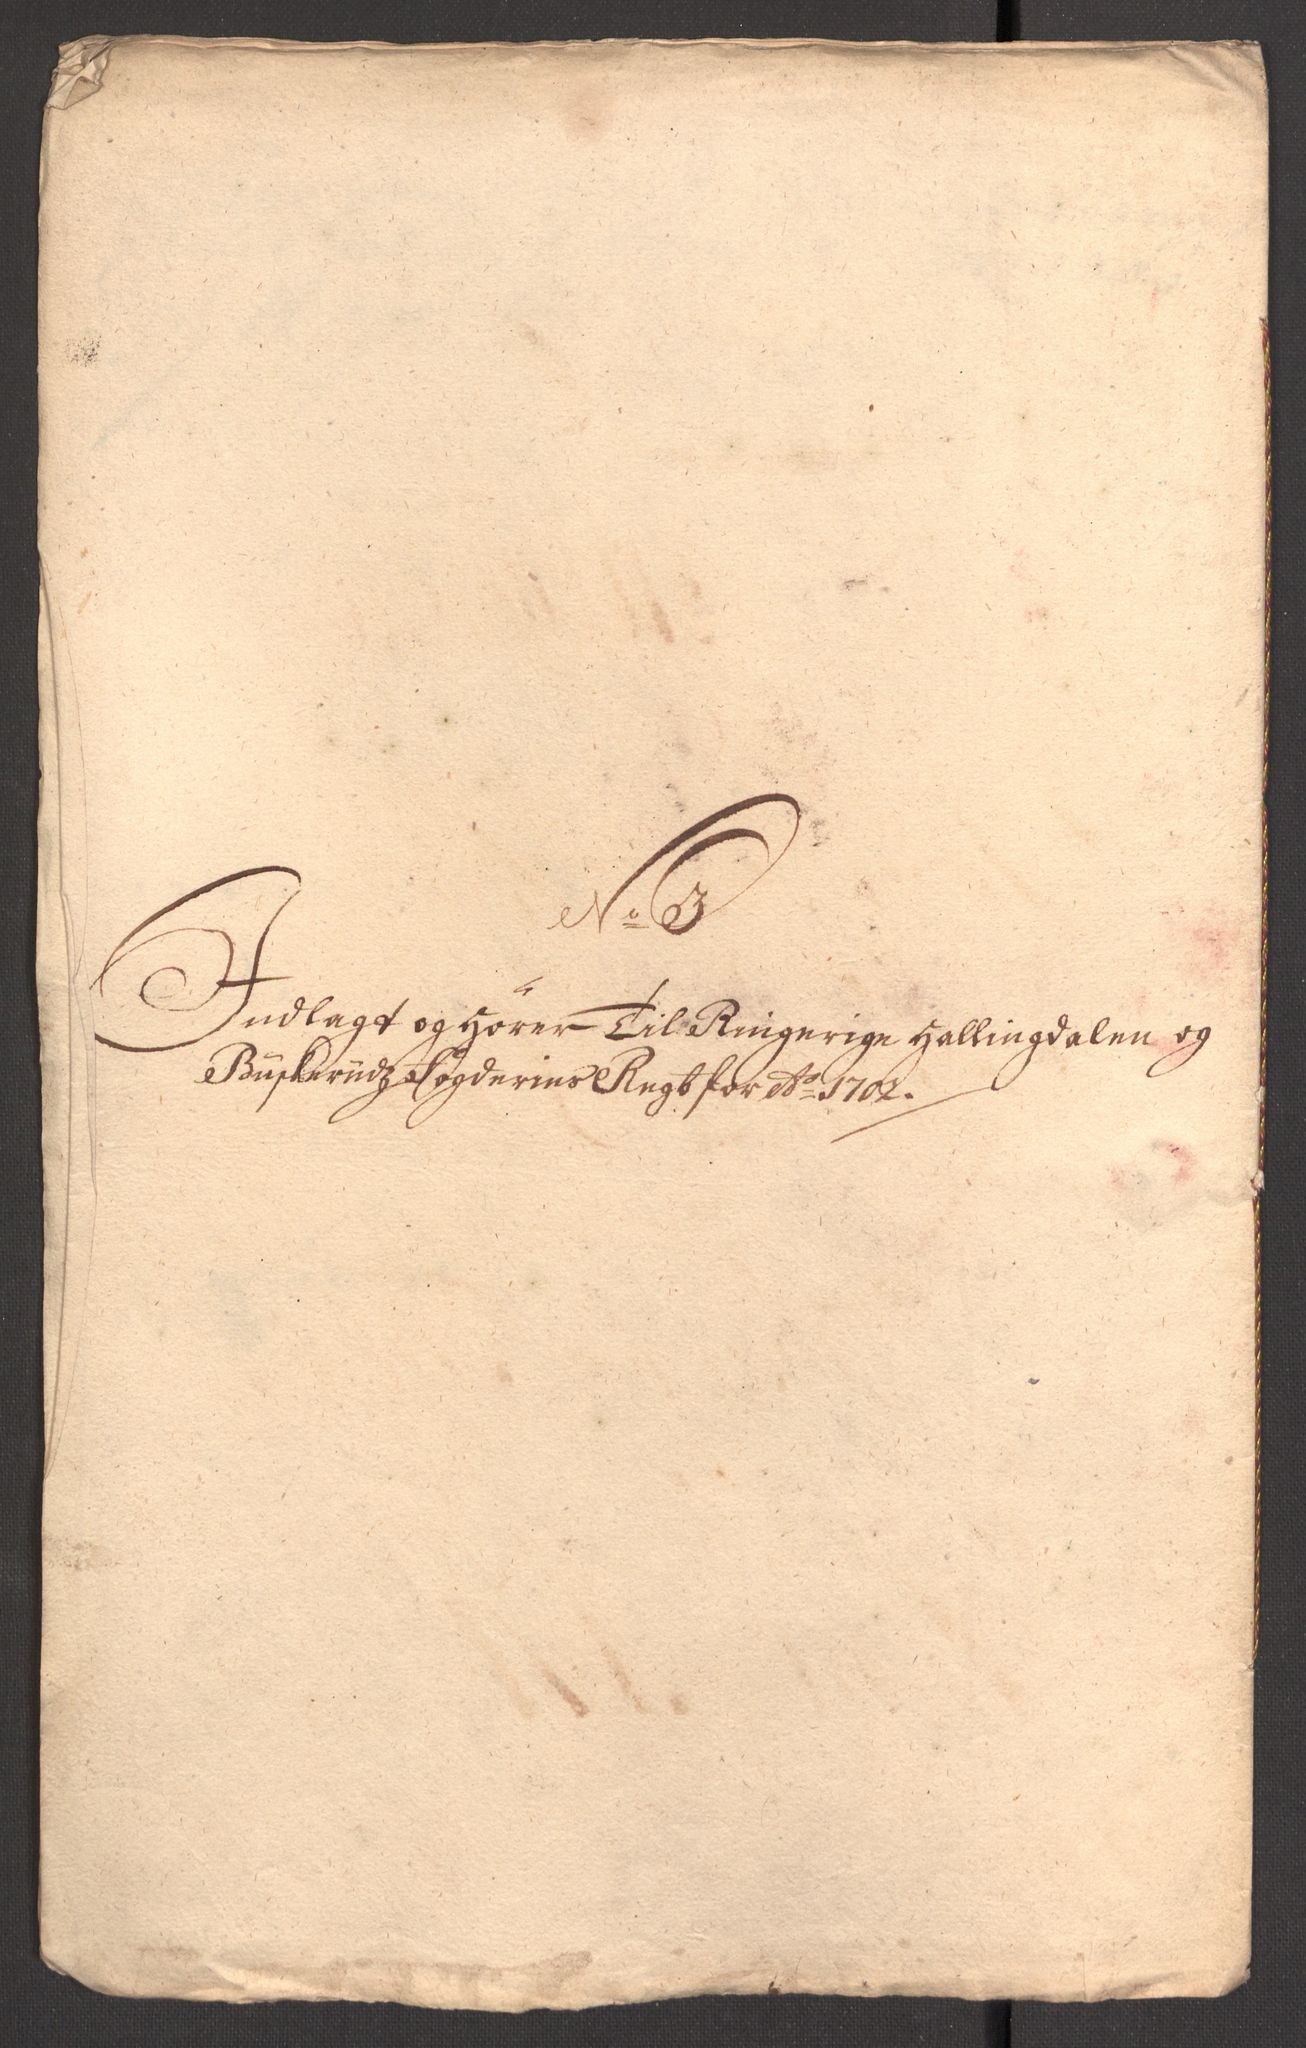 No 3
Indlagt og Hörer Til Ringerige Hallingdalen og
Büskerüdz fogderies Regb for Ao 1702.